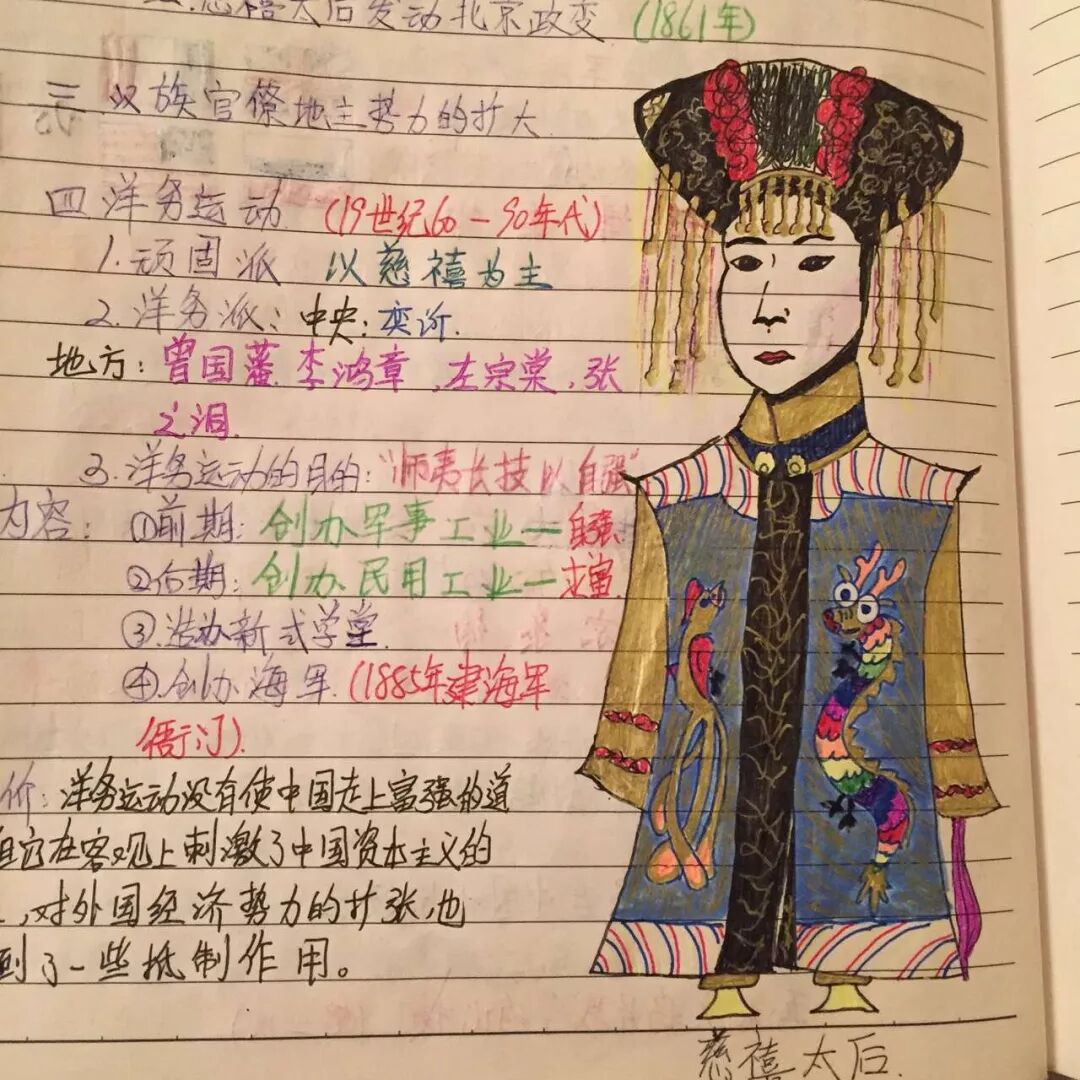 二.慈禧太后发动北京政变 (1861年)
三 汉族官僚地主势力的扩大
四 洋务运动 (19世纪60-90年代)
1.顽固派 以慈禧为主
2.洋务派:中央:奕䜣.
地方:曾国藩.李鸿章,左宗棠,张
之洞.
3.洋务运动的目的:"师夷长技以自强"
内容:①前期:创办军事工业—自强.
②后期:创办民用工业—求富.
③ 新式学堂.
④.创办海军.(1885年建海军
衙门).
价:洋务运动没有使中国走上富强的道
但它在客观上刺激了中国资本主义的
,对外国经济势力的扩张,也
到了一些抵制作用。
慈禧太后.